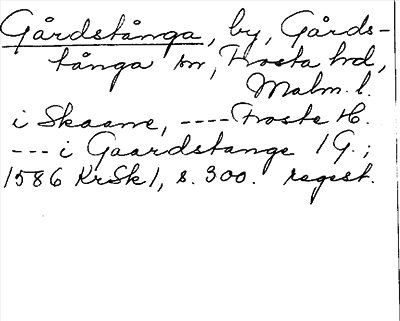 Gårdstånga, by, Gårds-
tånga sn, Frosta hd,
Malm. l.
i Skaane, ---- Froste H.
--- i Gaardstange / G.;
1586 KrSk 1, s. 300. regest.